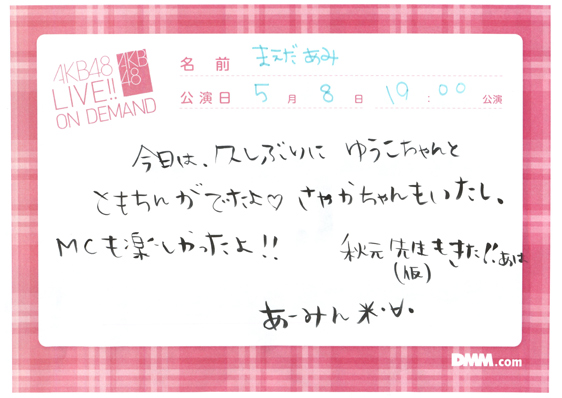 AKB48
LIVE!!
ON DEMAND
AKB
48
名前 まえだあみ
公演日 5月8日 19:00公演
今日は、久しぶりに ゆうこちゃんと
ともちんがでたよ♡ さやかちゃんもいたし。
MCも楽しかったよ!!
秋元先生もきた!!あは
(仮)
あーみん
DMM.com